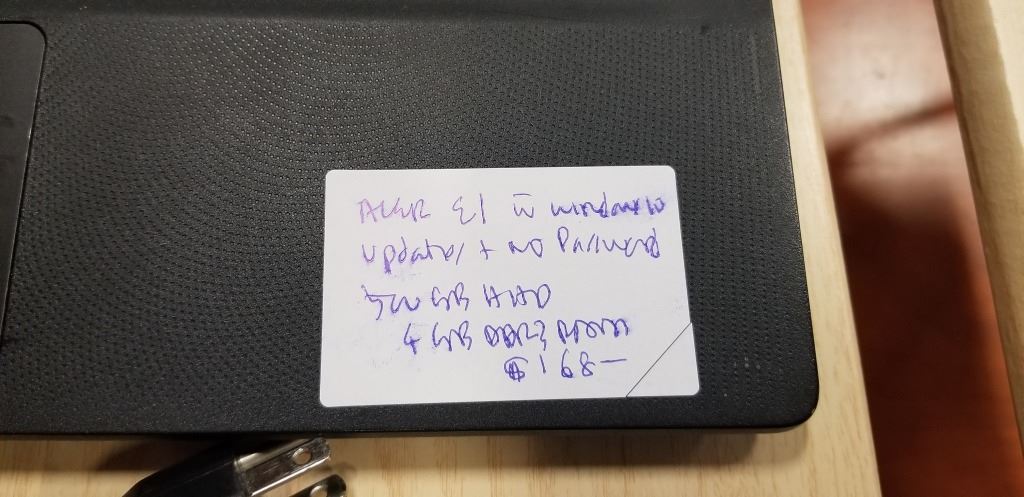 ACER E1 w̄ windows 10
updates + no Password
500 GB HDD
4 GB DDR3 RAM
$168—